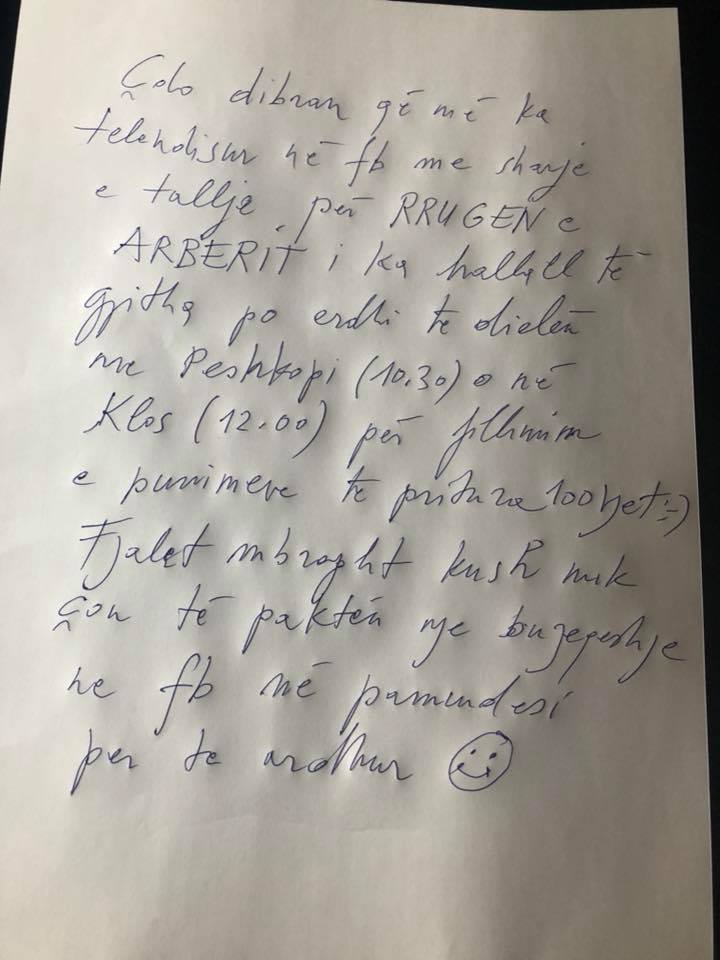 Çdo dibran që më ka
telendisur në fb me sharje
e tallje për RRUGEN e
ARBERIT i ka hallall të
gjitha po erdhi te dielën
në Peshkopi (10.30) o në
Klos (12.00) për fillimin
e punimeve te pritura 100vjet :-)
Fjalet mbrapsht kush nuk
çon të paktën nje buzeqeshje
ne fb në pamundesi
per te ardhur ☺